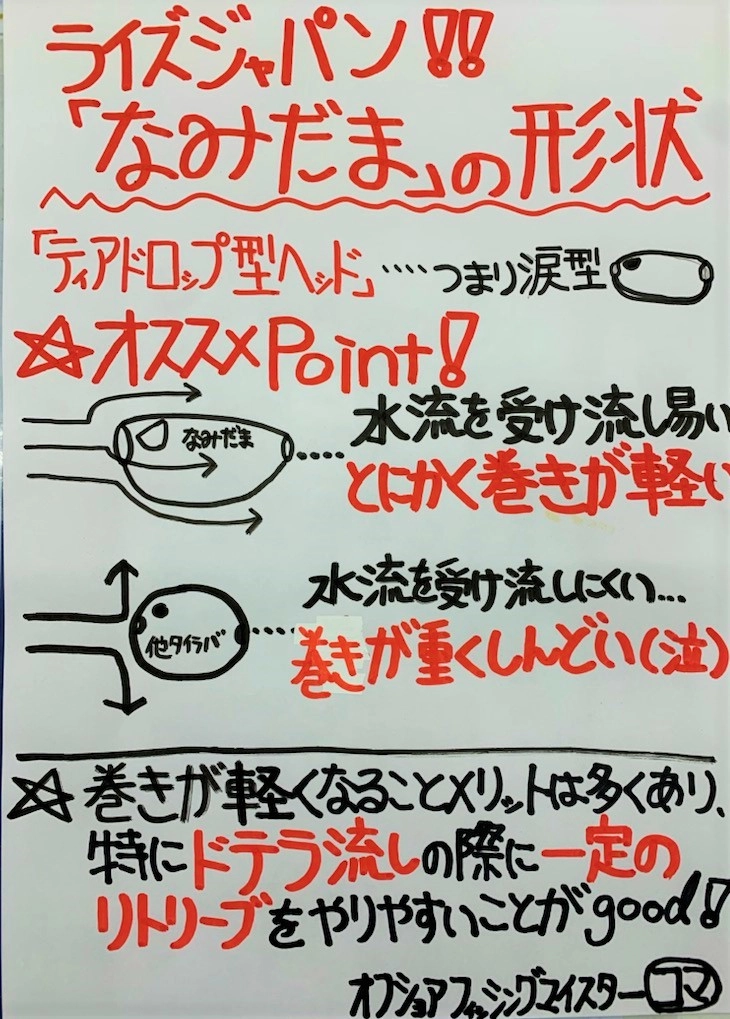 ライズジャパン!!
「なみだま」の形状
「ティアドロップ型ヘッド」‥‥つまり涙型
☆オススメPoint!
なみだま
‥‥水流を受け流し易い
とにかく巻きが軽い
他タイラバ
‥‥水流を受け流しにくい…
巻きが重くしんどい(泣)
☆巻きが軽くなることメリットは多くあり、
特にドテラ流しの際に一定の
リトリーブをやりやすいことがgood!
オフショアフィッシングマイスターコマ